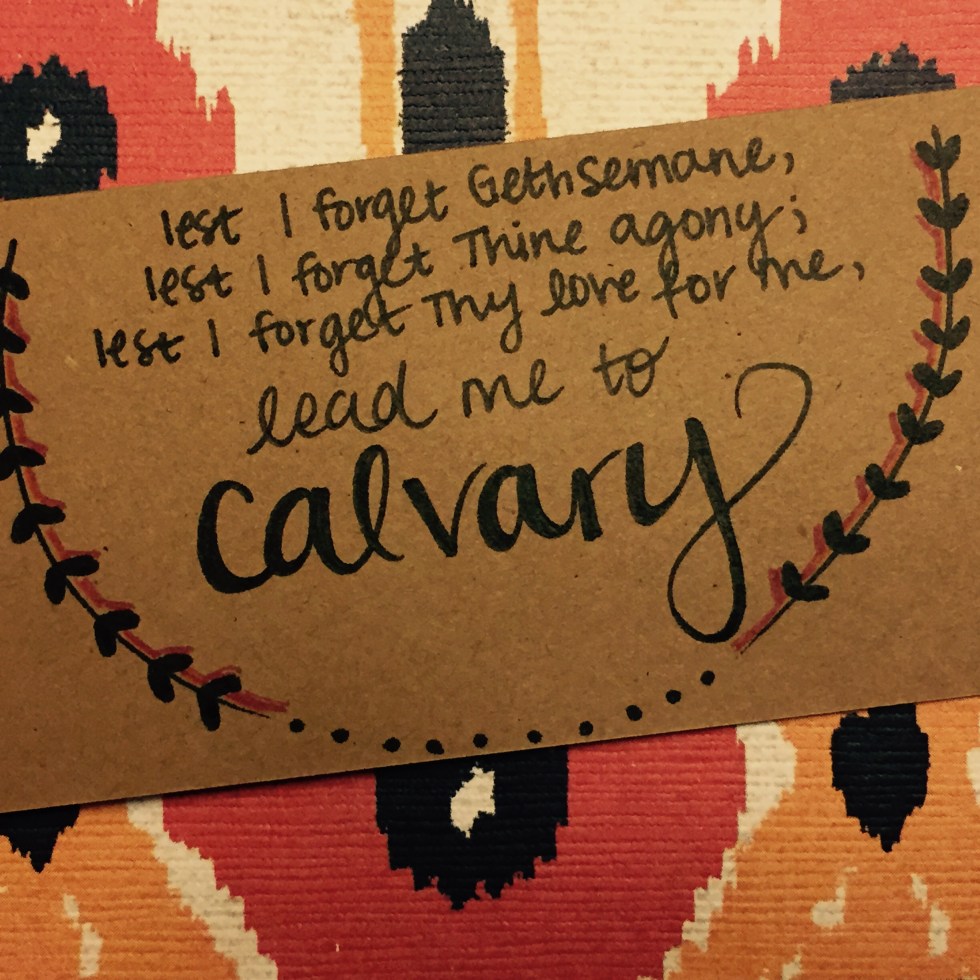 lest I forget Gethsemane,
lest I forget Thine agony;
lest I forget Thy love for me,
lead me to
calvary